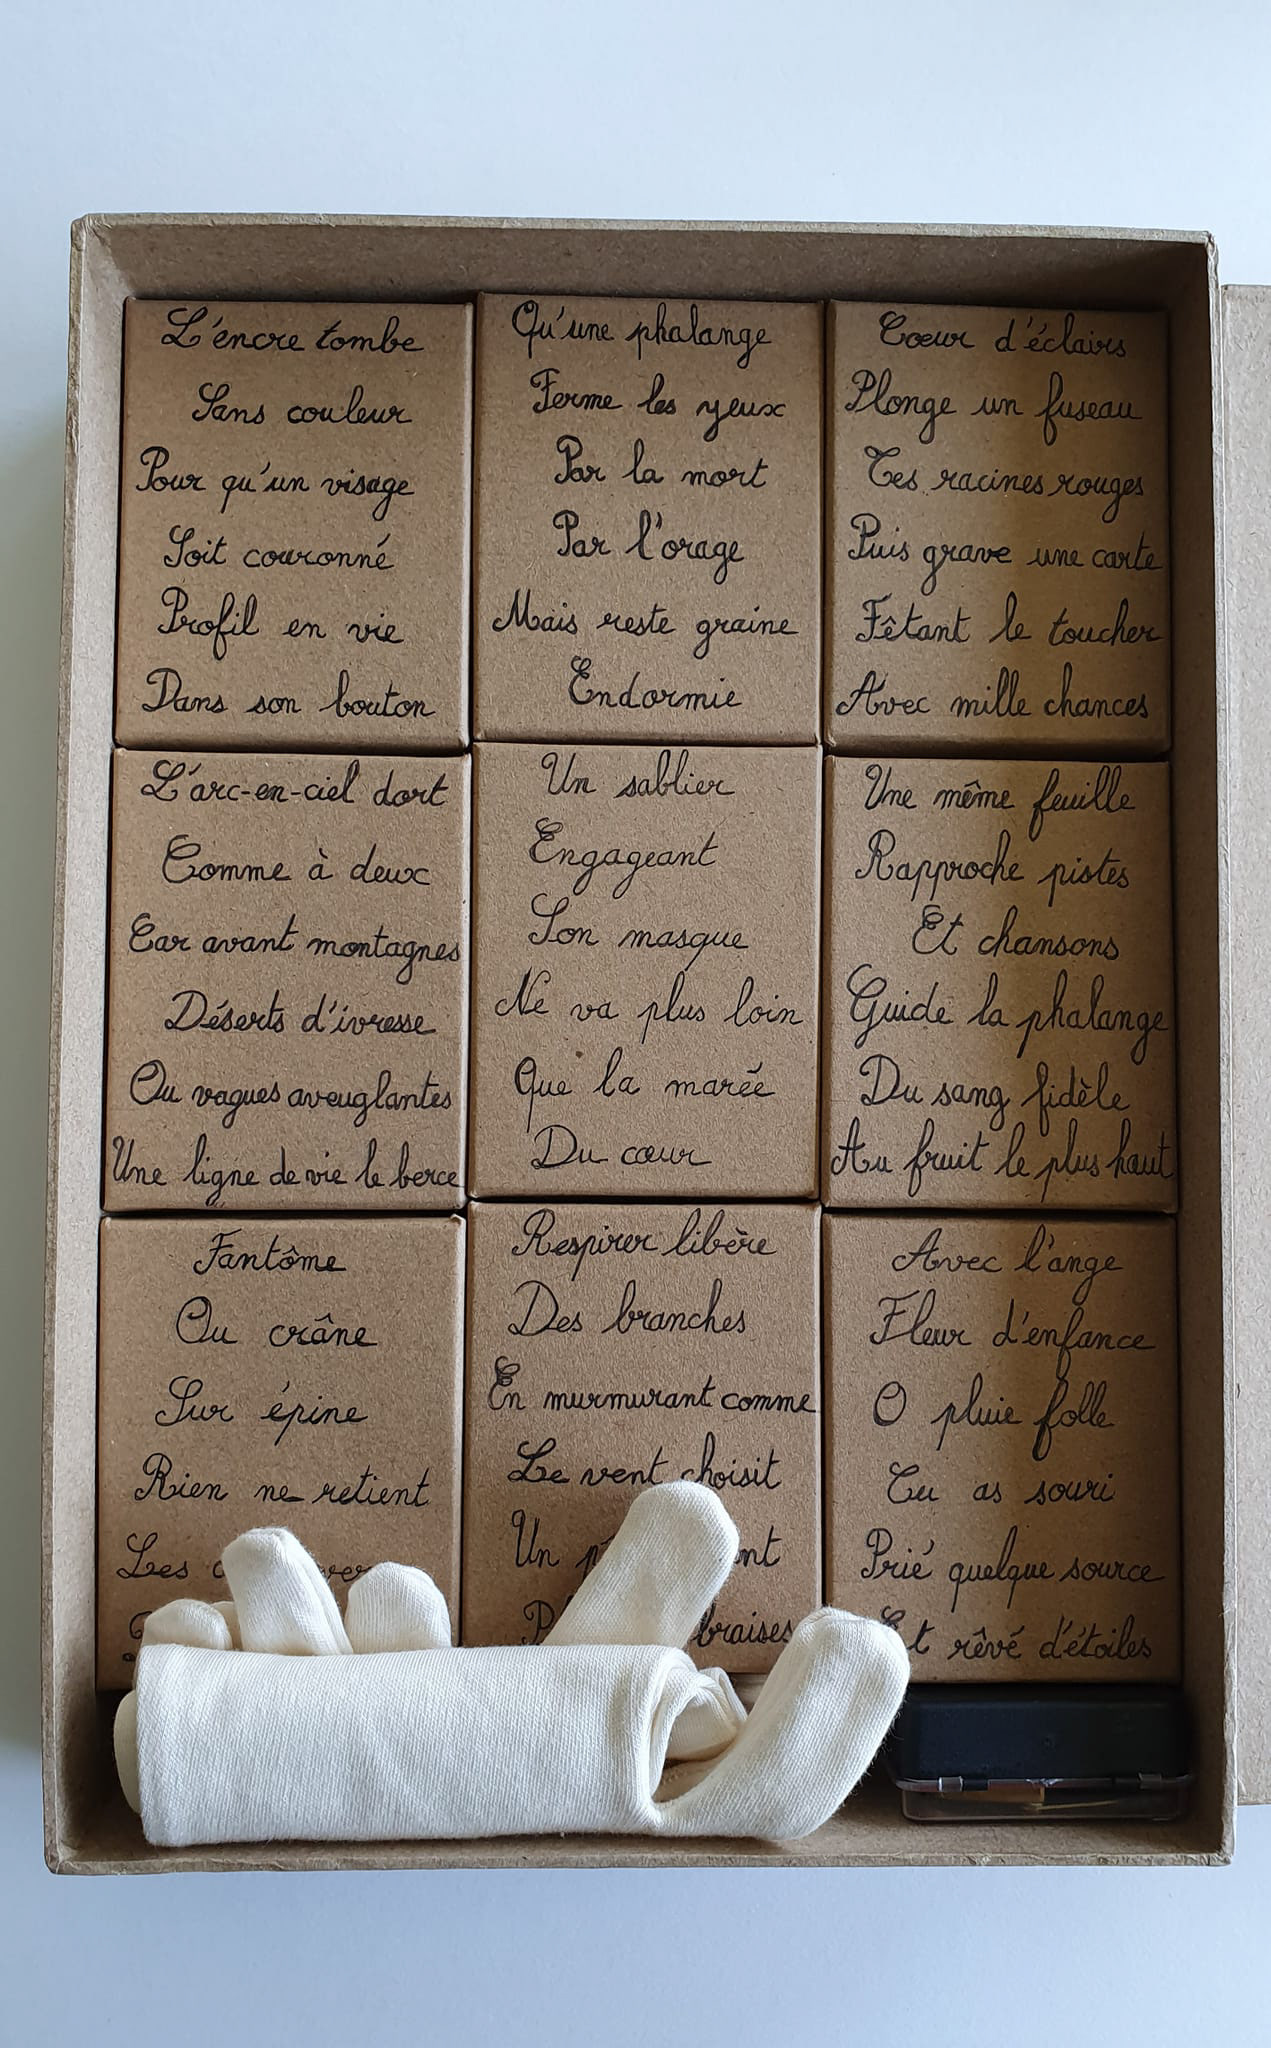 L'encre tombe
Sans couleur
Pour qu'un visage
Soit couronné
Profil en vie
Dans son bouton
Qu'une phalange
Ferme les yeux
Par la mort
Par l'orage
Mais reste graine
Endormie
Cœur d'éclairs
Plonge un fuseau
Tes racines rouges
Puis grave une carte
Fêtant le toucher
Avec mille chances
L'arc-en-ciel dort
Comme à deux
Car avant montagnes
Déserts d'ivresse
Ou vagues aveuglantes
Une ligne de vie le berce
Un sablier
Engageant
Son masque
Ne va plus loin
Que la marée
Du cœur
Une même feuille
Rapproche pistes
Et chansons
Guide la phalange
Du sang fidèle
Au fruit le plus haut
Fantôme
Ou crâne
Sur épine
Rien ne retient
Les
Respirer libère
Des branches
En murmurant comme
Le vent choisit
Un
braises
Avec l'ange
Fleur d'enfance
O pluie folle
Tu as souri
Prié quelque source
Et rêvé d'étoiles